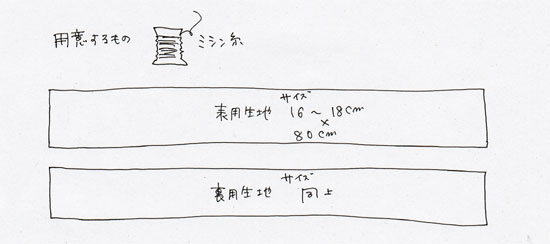 用意するもの ミシン糸
サイズ
表用生地 16〜18cm
×
80cm
サイズ
裏用生地 同上